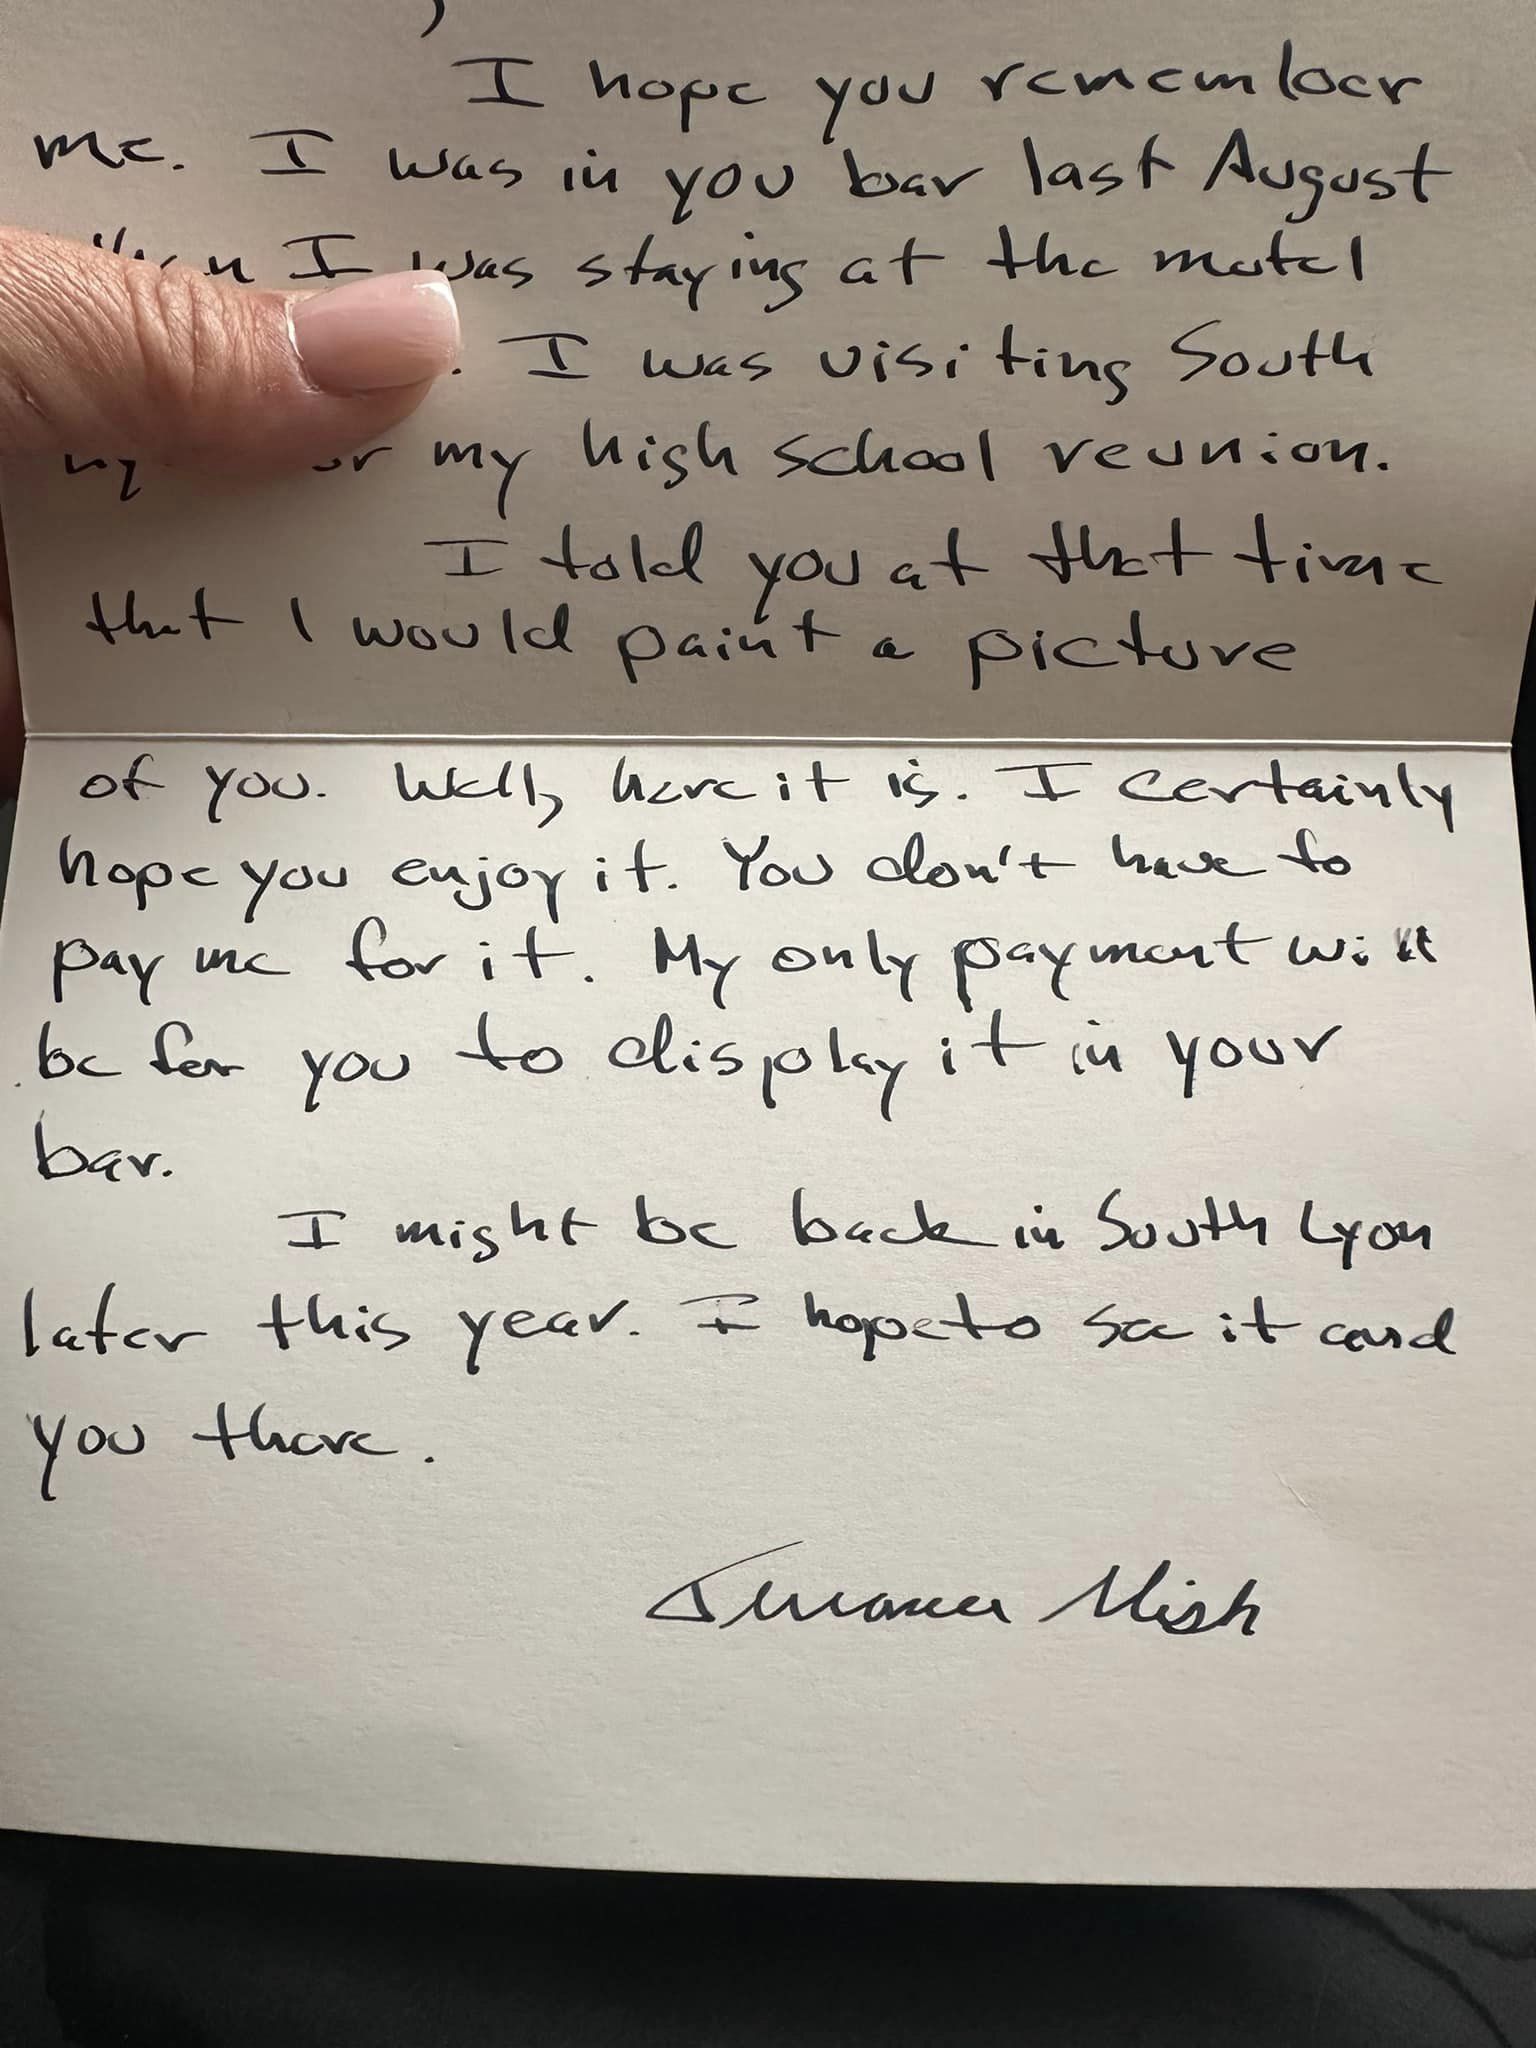 I hope you remember
me. I was in you bar last August
when I was staying at the motel
. I was visiting South
my high school reunion.
I told you at that time
that I would paint a picture
of you. Well, here it is. I certainly
hope you enjoy it. You don't have to
pay me for it. My only payment will
be for you to display it in your
bar.
I might be back in South Lyon
later this year. I hope to see it and
you there.
Mish